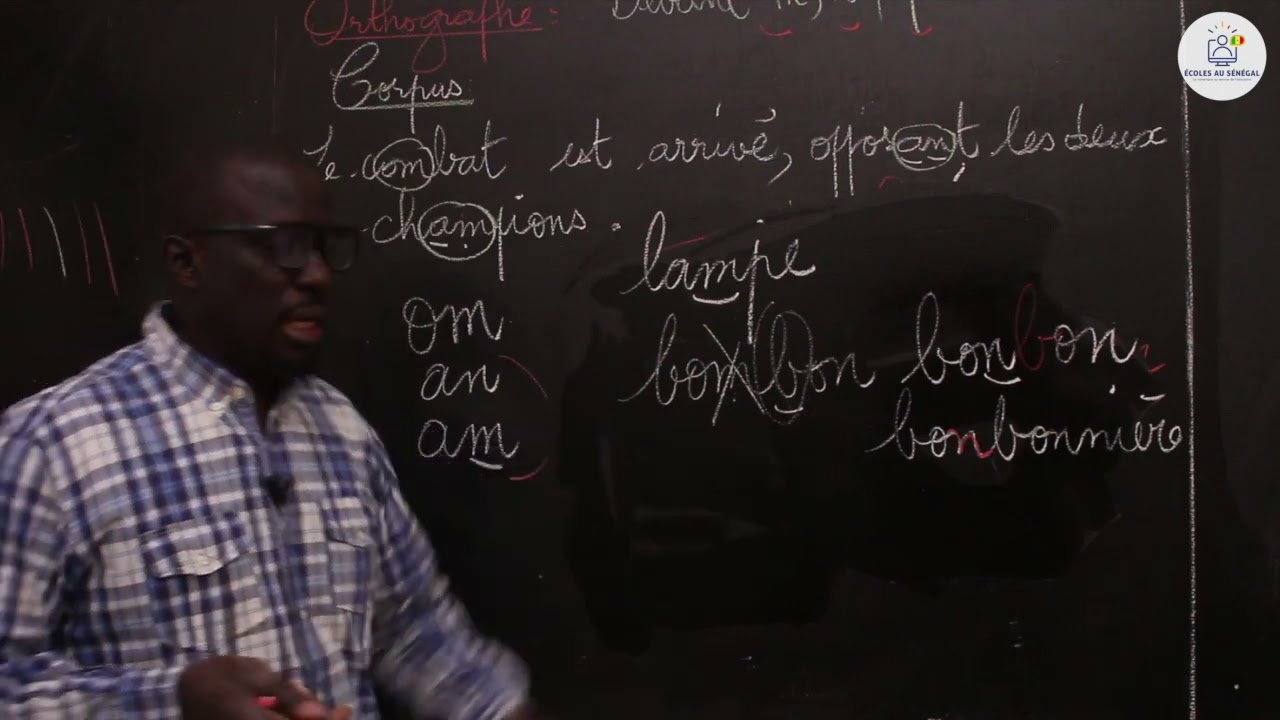 Orthographe : Devant m,
Corpus
Le combat est arrivé, opposant les deux
champions.
lampe
om
an
am
bon bon bonbon
bonbonnière
ÉCOLES AU SÉNÉGAL